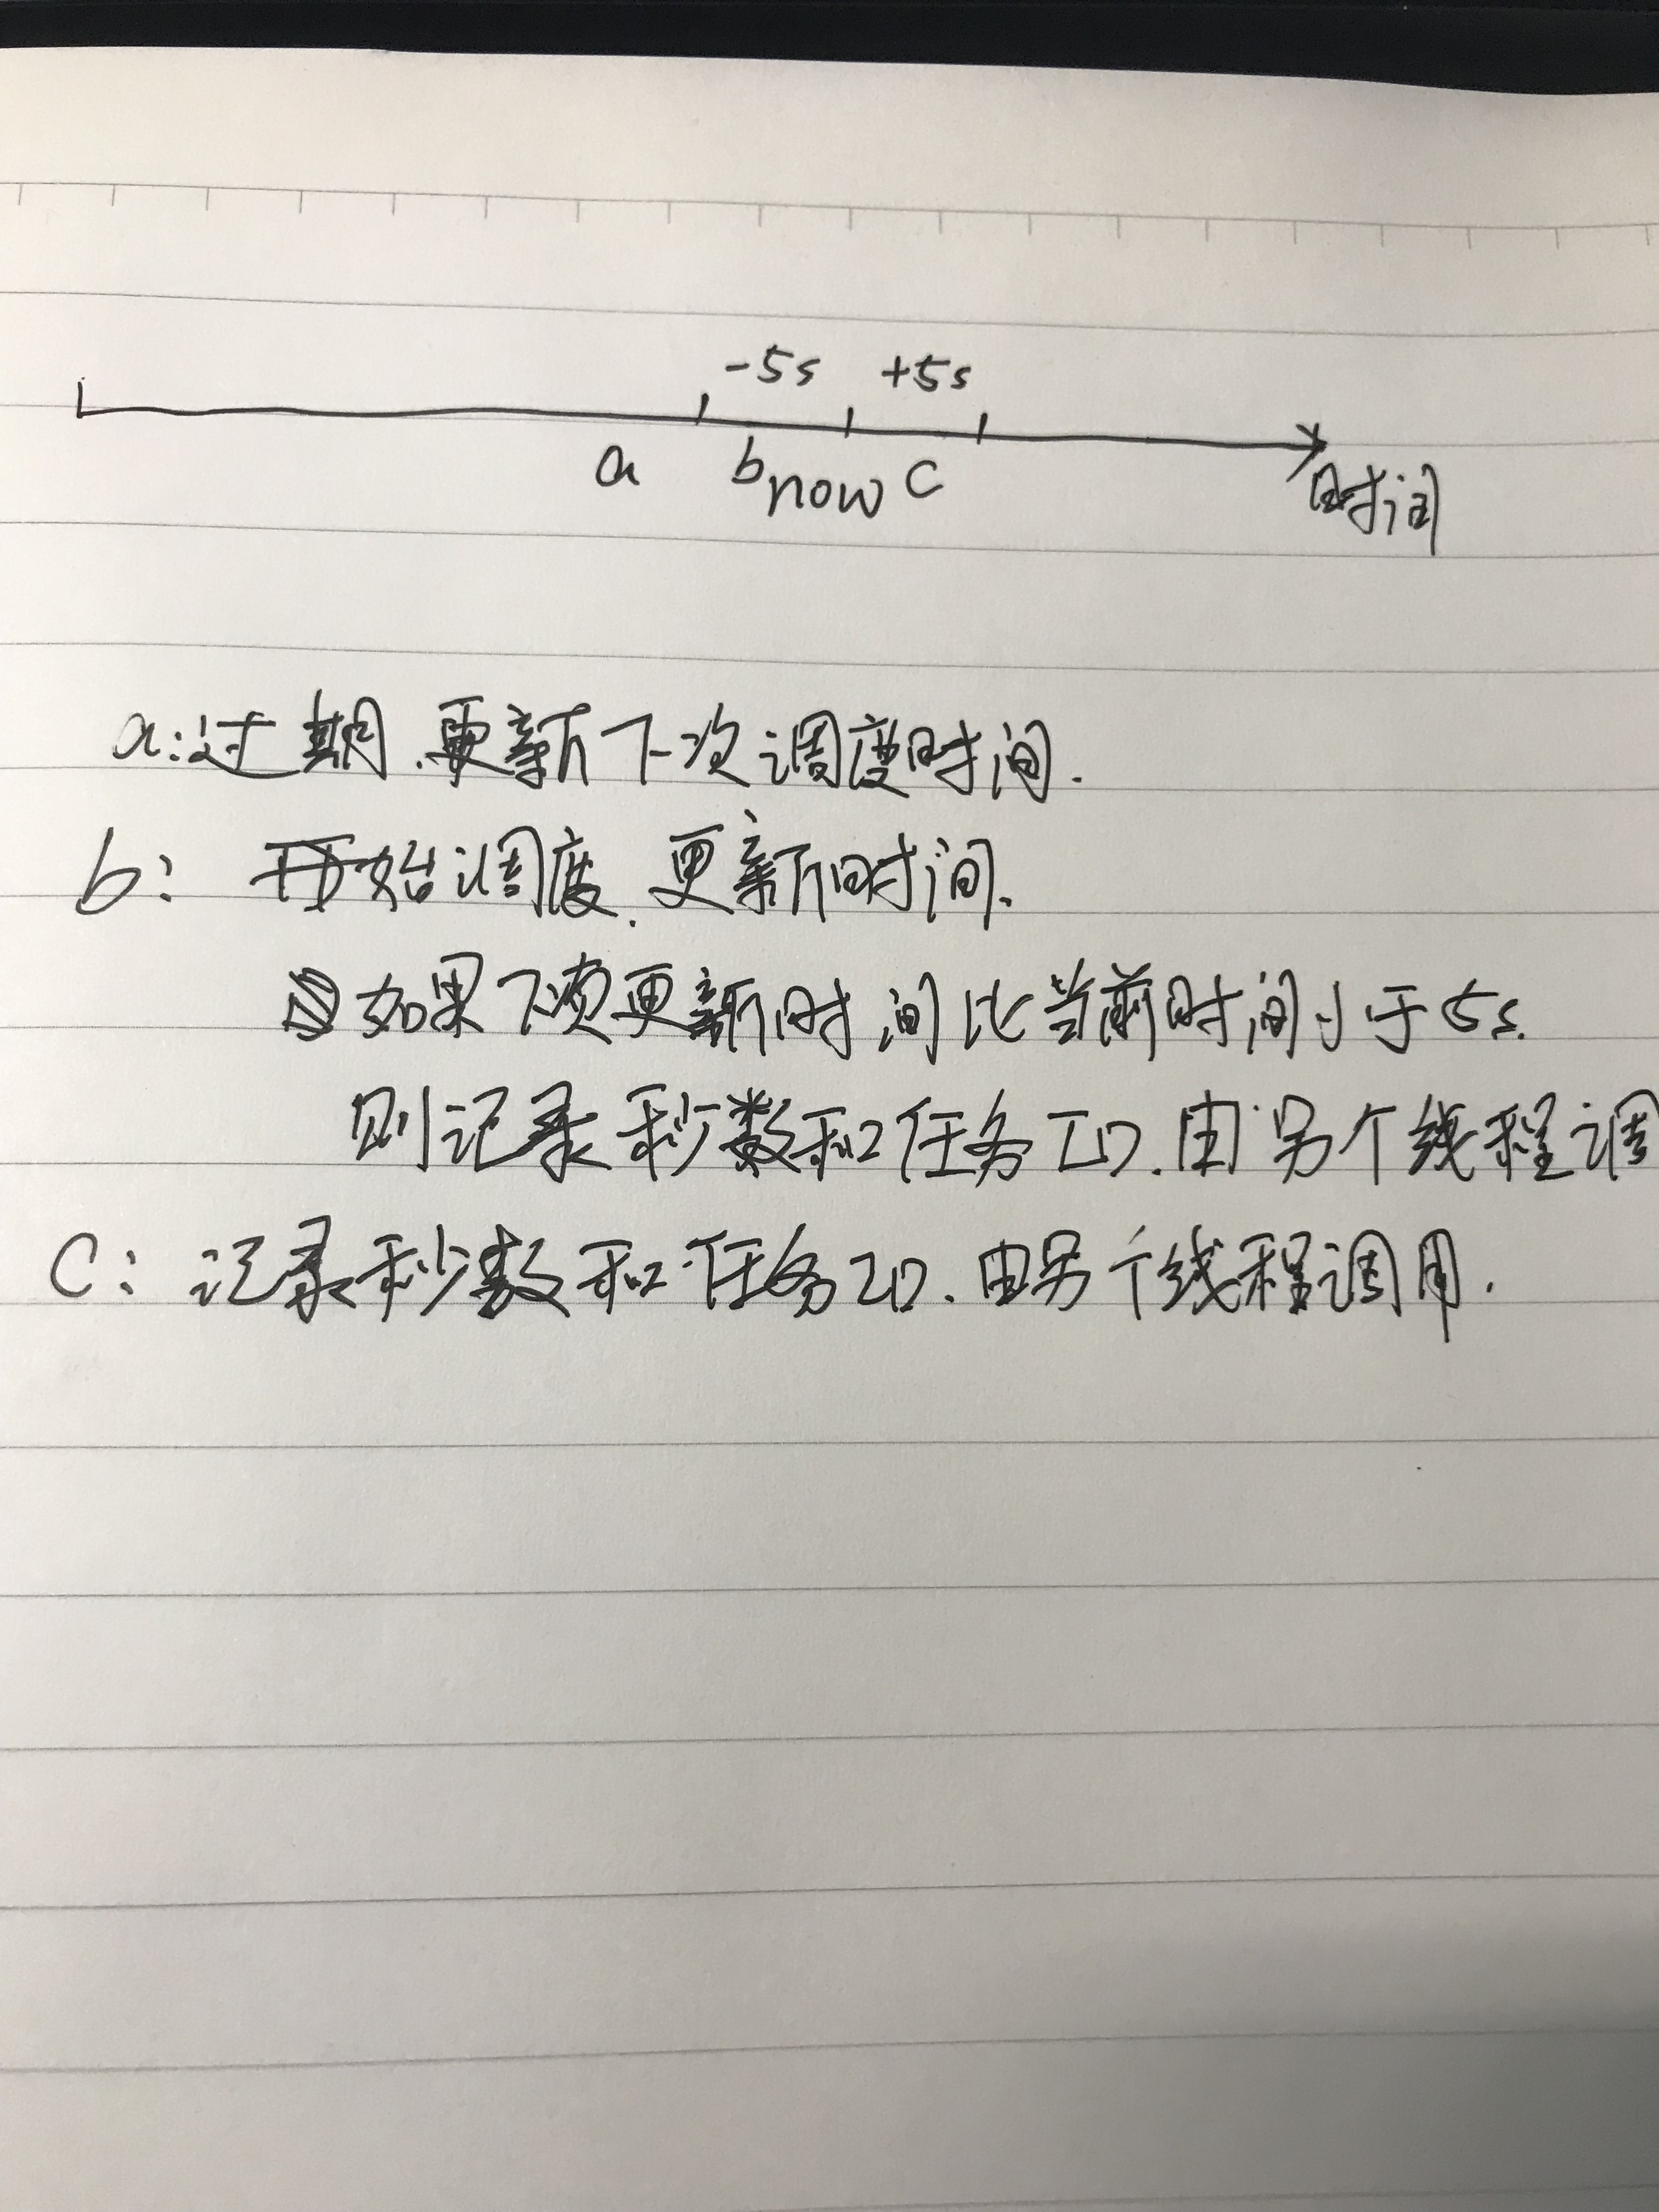 -5s +5s
a b now c
时间
a:过期.更新下次调度时间.
b: 开始调度.更新时间.
如果下次更新时间比当前时间小于5s.
则记录秒数和任务ID.由另个线程调
C: 记录秒数和任务ID.由另个线程调用.